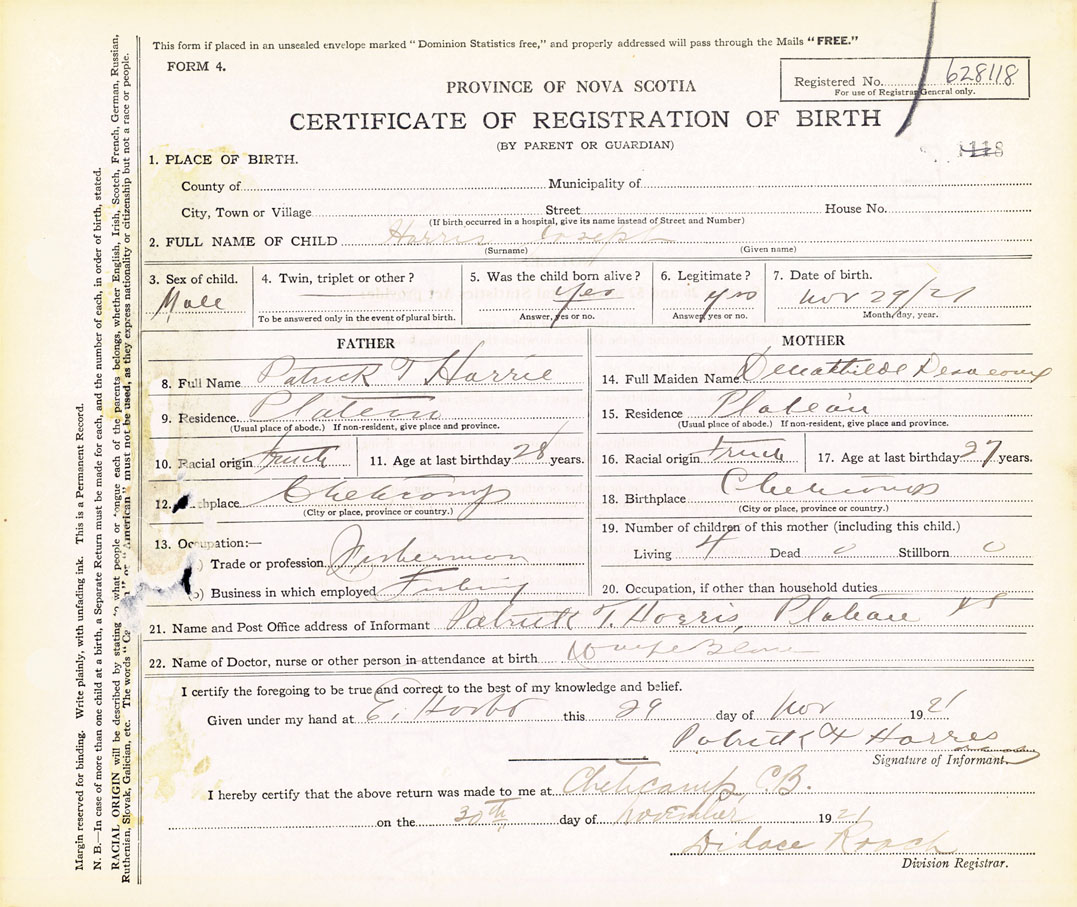 This form if placed in an unsealed envelope marked "Dominion Statistics free," and properly addressed will pass through the Mails "FREE."
FORM 4.
Registered No. 628118
For use of Registrar General only.
PROVINCE OF NOVA SCOTIA
CERTIFICATE OF REGISTRATION OF BIRTH
(BY PARENT OR GUARDIAN)
1118
1. PLACE OF BIRTH.
County of Municipality of
City, Town or Village Street House No.
(If birth occurred in a hospital, give its name instead of Street and Number)
2. FULL NAME OF CHILD Harris Joseph
(Surname) (Given name)
3. Sex of child. 4. Twin, triplet or other? 5. Was the child born alive? 6. Legitimate? 7. Date of birth.
Male Yes Yes Nov 29/21
To be answered only in the event of plural birth. Answer, yes or no. Answer, yes or no. Month, day, year.
FATHER
8. Full Name Patrick T Harrie
9. Residence Plateau
(Usual place of abode.) If non-resident, give place and province.
10. Racial origin 11. Age at last birthday 28 years.
12. thplace Cheticamp
(City or place, province or country.)
13. Occupation:—
) Trade or profession Fisherman
(b) Business in which employed Fishing
MOTHER
14. Full Maiden Name
15. Residence Plateau
(Usual place of abode.) If non-resident, give place and province.
16. Racial origin 17. Age at last birthday 27 years.
18. Birthplace Cheticamp
(City or place, province or country.)
19. Number of children of this mother (including this child.)
Living 4 Dead 0 Stillborn 0
20. Occupation, if other than household duties
21. Name and Post Office address of Informant Patrick T. Harris, Plateau NS
22. Name of Doctor, nurse or other person in attendance at birth
I certify the foregoing to be true and correct to the best of my knowledge and belief.
Given under my hand at E. this 29 day of Nov 1921
Patrick Harres
Signature of Informant.
I hereby certify that the above return was made to me at Cheticamp, C.B.
on the 30th day of November 1921
Roach
Division Registrar.
Margin reserved for binding. Write plainly, with unfading ink. This is a Permanent Record.
N. B.—In case of more than one child at a birth, a Separate Return must be made for each, and the number of each, in order of birth, stated.
RACIAL ORIGIN will be described by stating to what people or tongue each of the parents belongs, whether English, Irish, Scotch, French, German, Russian,
Ruthenian, Slovak, Galician, etc. The words "Ca or "American" must not be used, as they express nationality or citizenship but not a race or people.